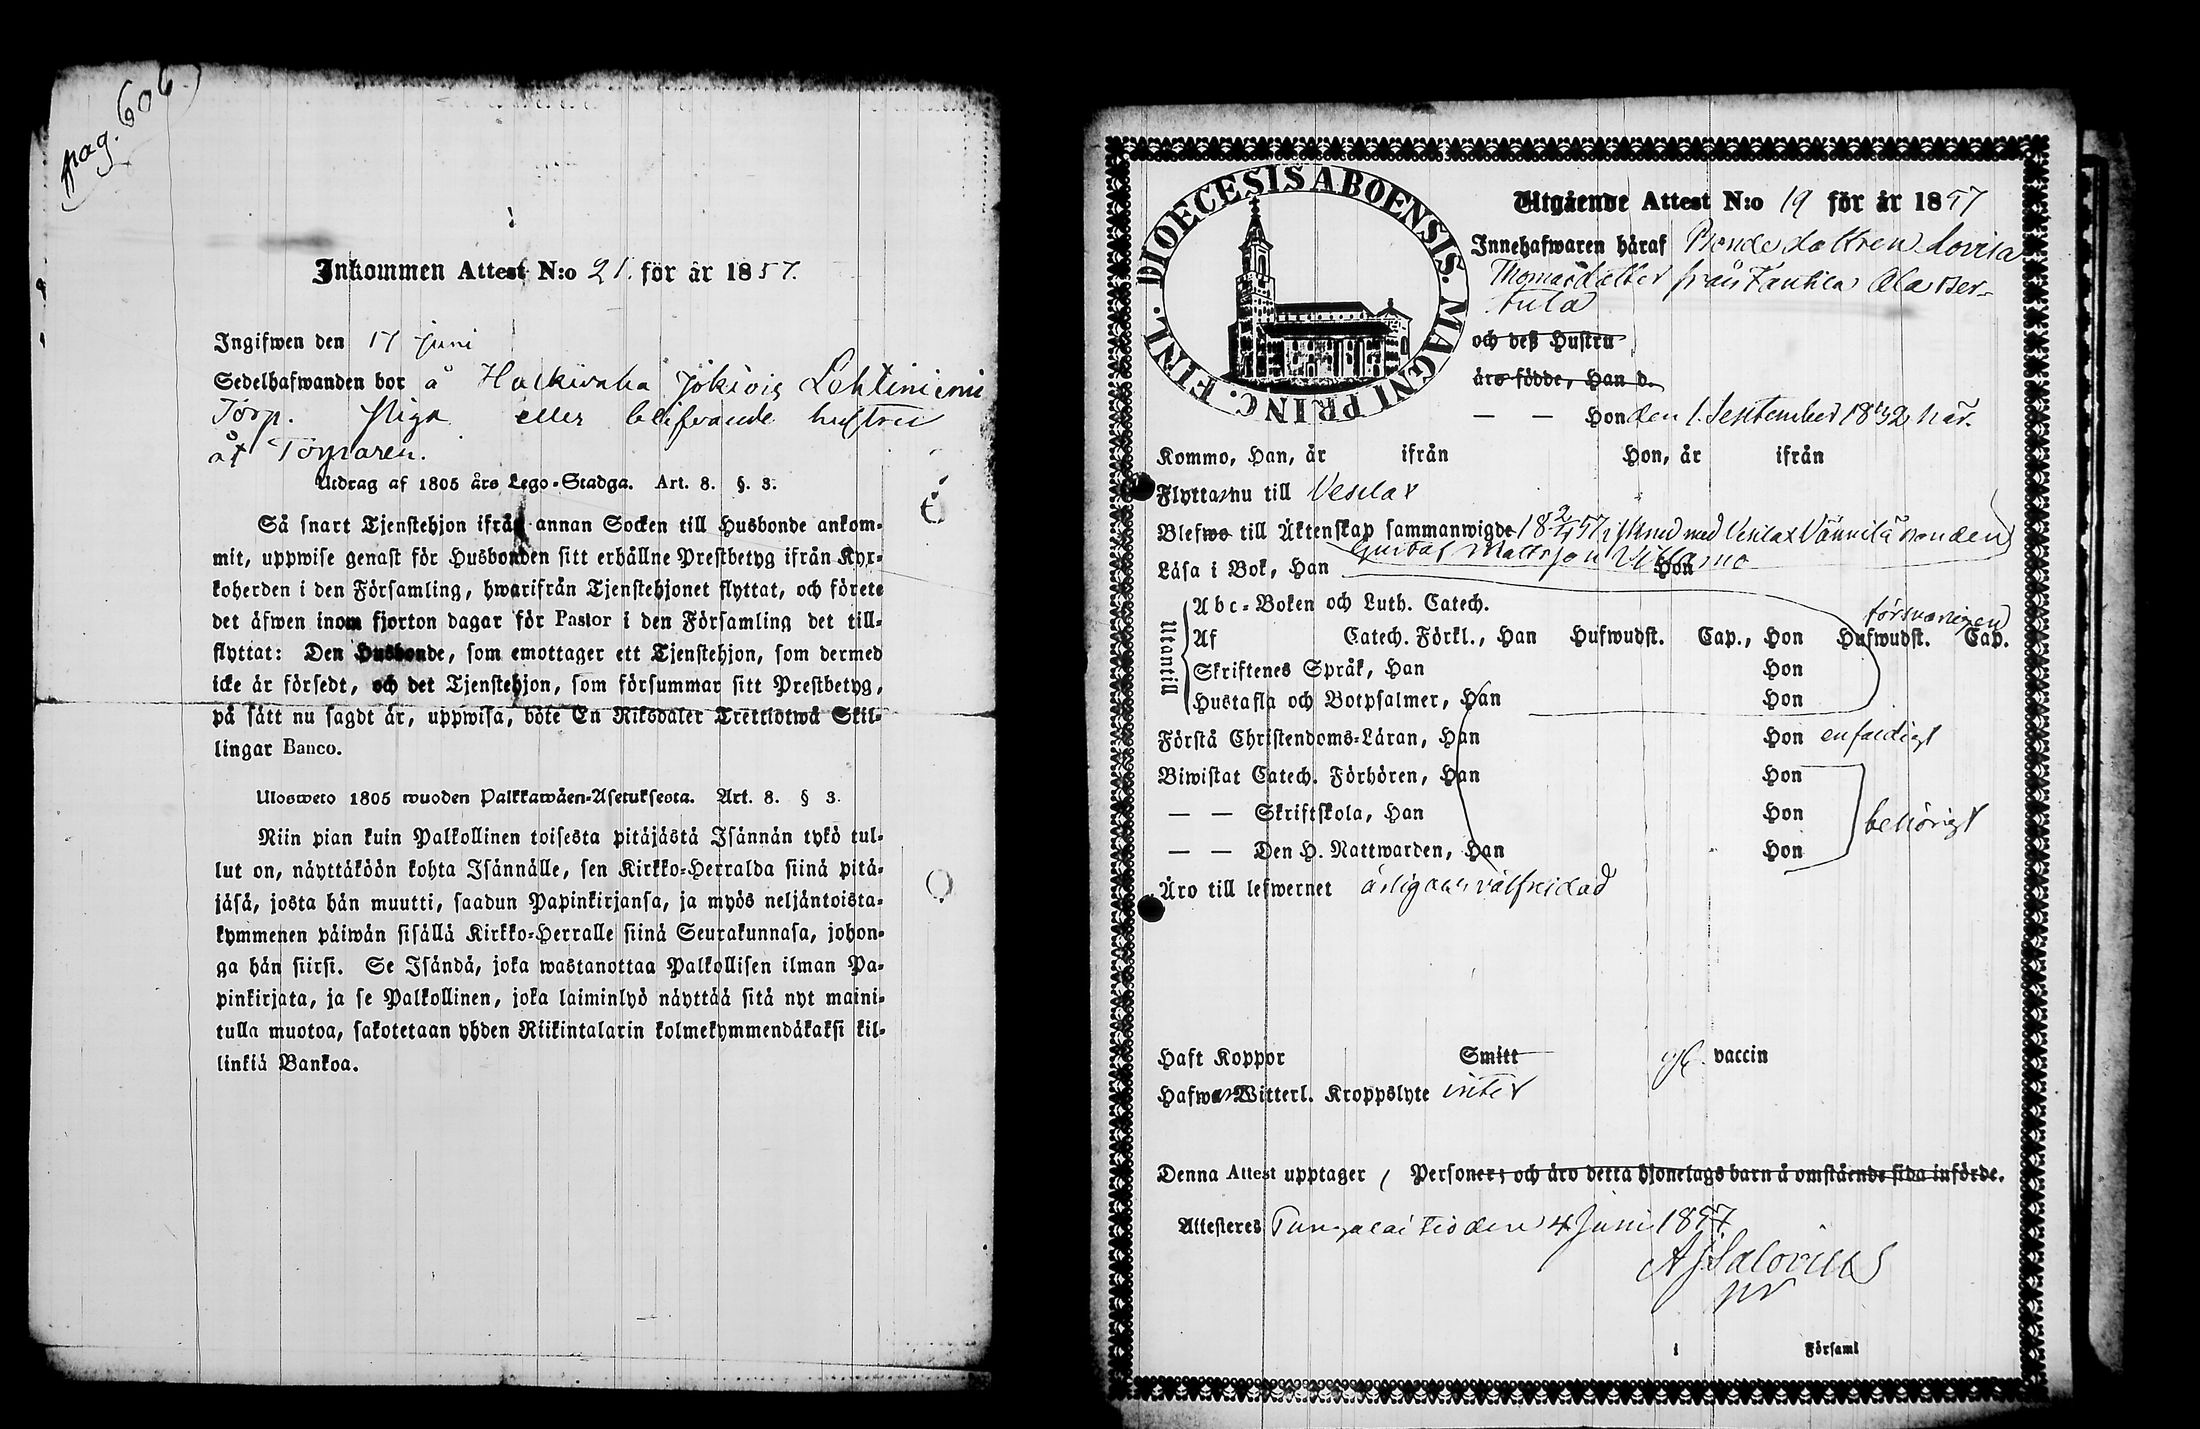 pag. 606.
Inkommen Attest N:o 21. för år 1857.
Ingifwen den 17 juni
Sedelhafwanden bor å Jokiois Lehtiniemi
Torp. Piga eller blifvande hustru
åt Torparen.
Utdrag af 1805 års Lego-Stadga. Art. 8. §. 3.
Så snart Tjenstehjon ifrån annan Socken till Husbonde ankom-
mit, uppwise genast för Husbonden sitt erhållne Prestbetyg ifrån Kyr-
koherden i den Församling, hwarifrån Tjenstehjonet flyttat, och förete
det äfwen inom fjorton dagar för Pastor i den Församling det till-
flyttat: Den Husbonde, som emottager ett Tjenstehjon, som dermed
icke är försedt, och det Tjenstehjon, som försummar sitt Prestbetyg,
på sätt nu sagdt är, uppwisa, böte En Riksdaler Trettiotwå Skil-
lingar Banco.
Ulosweto 1805 wuoden Palkkawäen-Asetuksesta. Art. 8. § 3.
Niin pian kuin Palkollinen toisesta pitäjästä Isännän tykö tul-
lut on, näyttäköön kohta Isännälle, sen Kirkko-Herralda siinä pitä-
jäsä, josta hän muutti, saadun Papinkirjansa, ja myös neljäntoista-
kymmenen päiwän sisällä Kirkko-Herralle siinä Seurakunnasa, johon-
ga hän siirsi. Se Isändä, joka wastanottaa Palkollisen ilman Pa-
pinkirjata, ja se Palkollinen, joka laiminlyö näyttää sitä nyt maini-
tulla muotoa, sakotetaan yhden Riikintalarin kolmekymmendäkaksi kil-
linkiä Bankoa.
DIOECESIS ABOENSIS. MAGNI PRINC. FINL.
Utgående Attest N:o 19 för år 1857
Innehafwaren häraf Bondedottren Lovisa
Thomasdotter från
och deß Hustru
äro födde, Han d.
— — Hon den 1. September 1832 här.
Kommo, Han, år ifrån Hon, år ifrån
Flytta nu till Vesilax
Blefwo till Äktenskap sammanwigde med Vesilax Bonden
Gustaf Mattsson
Läsa i Bok, Han Hon
Utantill
Abc-Boken och Luth. Catech.
försvarligen
Af Catech. Förkl., Han Hufwudst. Cap., Hon Hufwudst. Cap.
Skriftenes Språk, Han Hon
Hustafla och Botpsalmer, Han Hon
Förstå Christendoms-Läran, Han Hon enfaldigt
Biwistat Catech. Förhören, Han Hon
— — Skriftskola, Han Hon behörigt
— — Den H. Nattwarden, Han Hon
Äro till lefwernet ärlig och välfrejdad
Haft Koppor Smitt vaccin
Hafwa Witterl. Kroppslyte intet
Denna Attest upptager 1 Personer; och äro detta hjonelags barn å omstående sida införde.
Attesteres Pungalaitio den 4 Juni 1857
i Församl